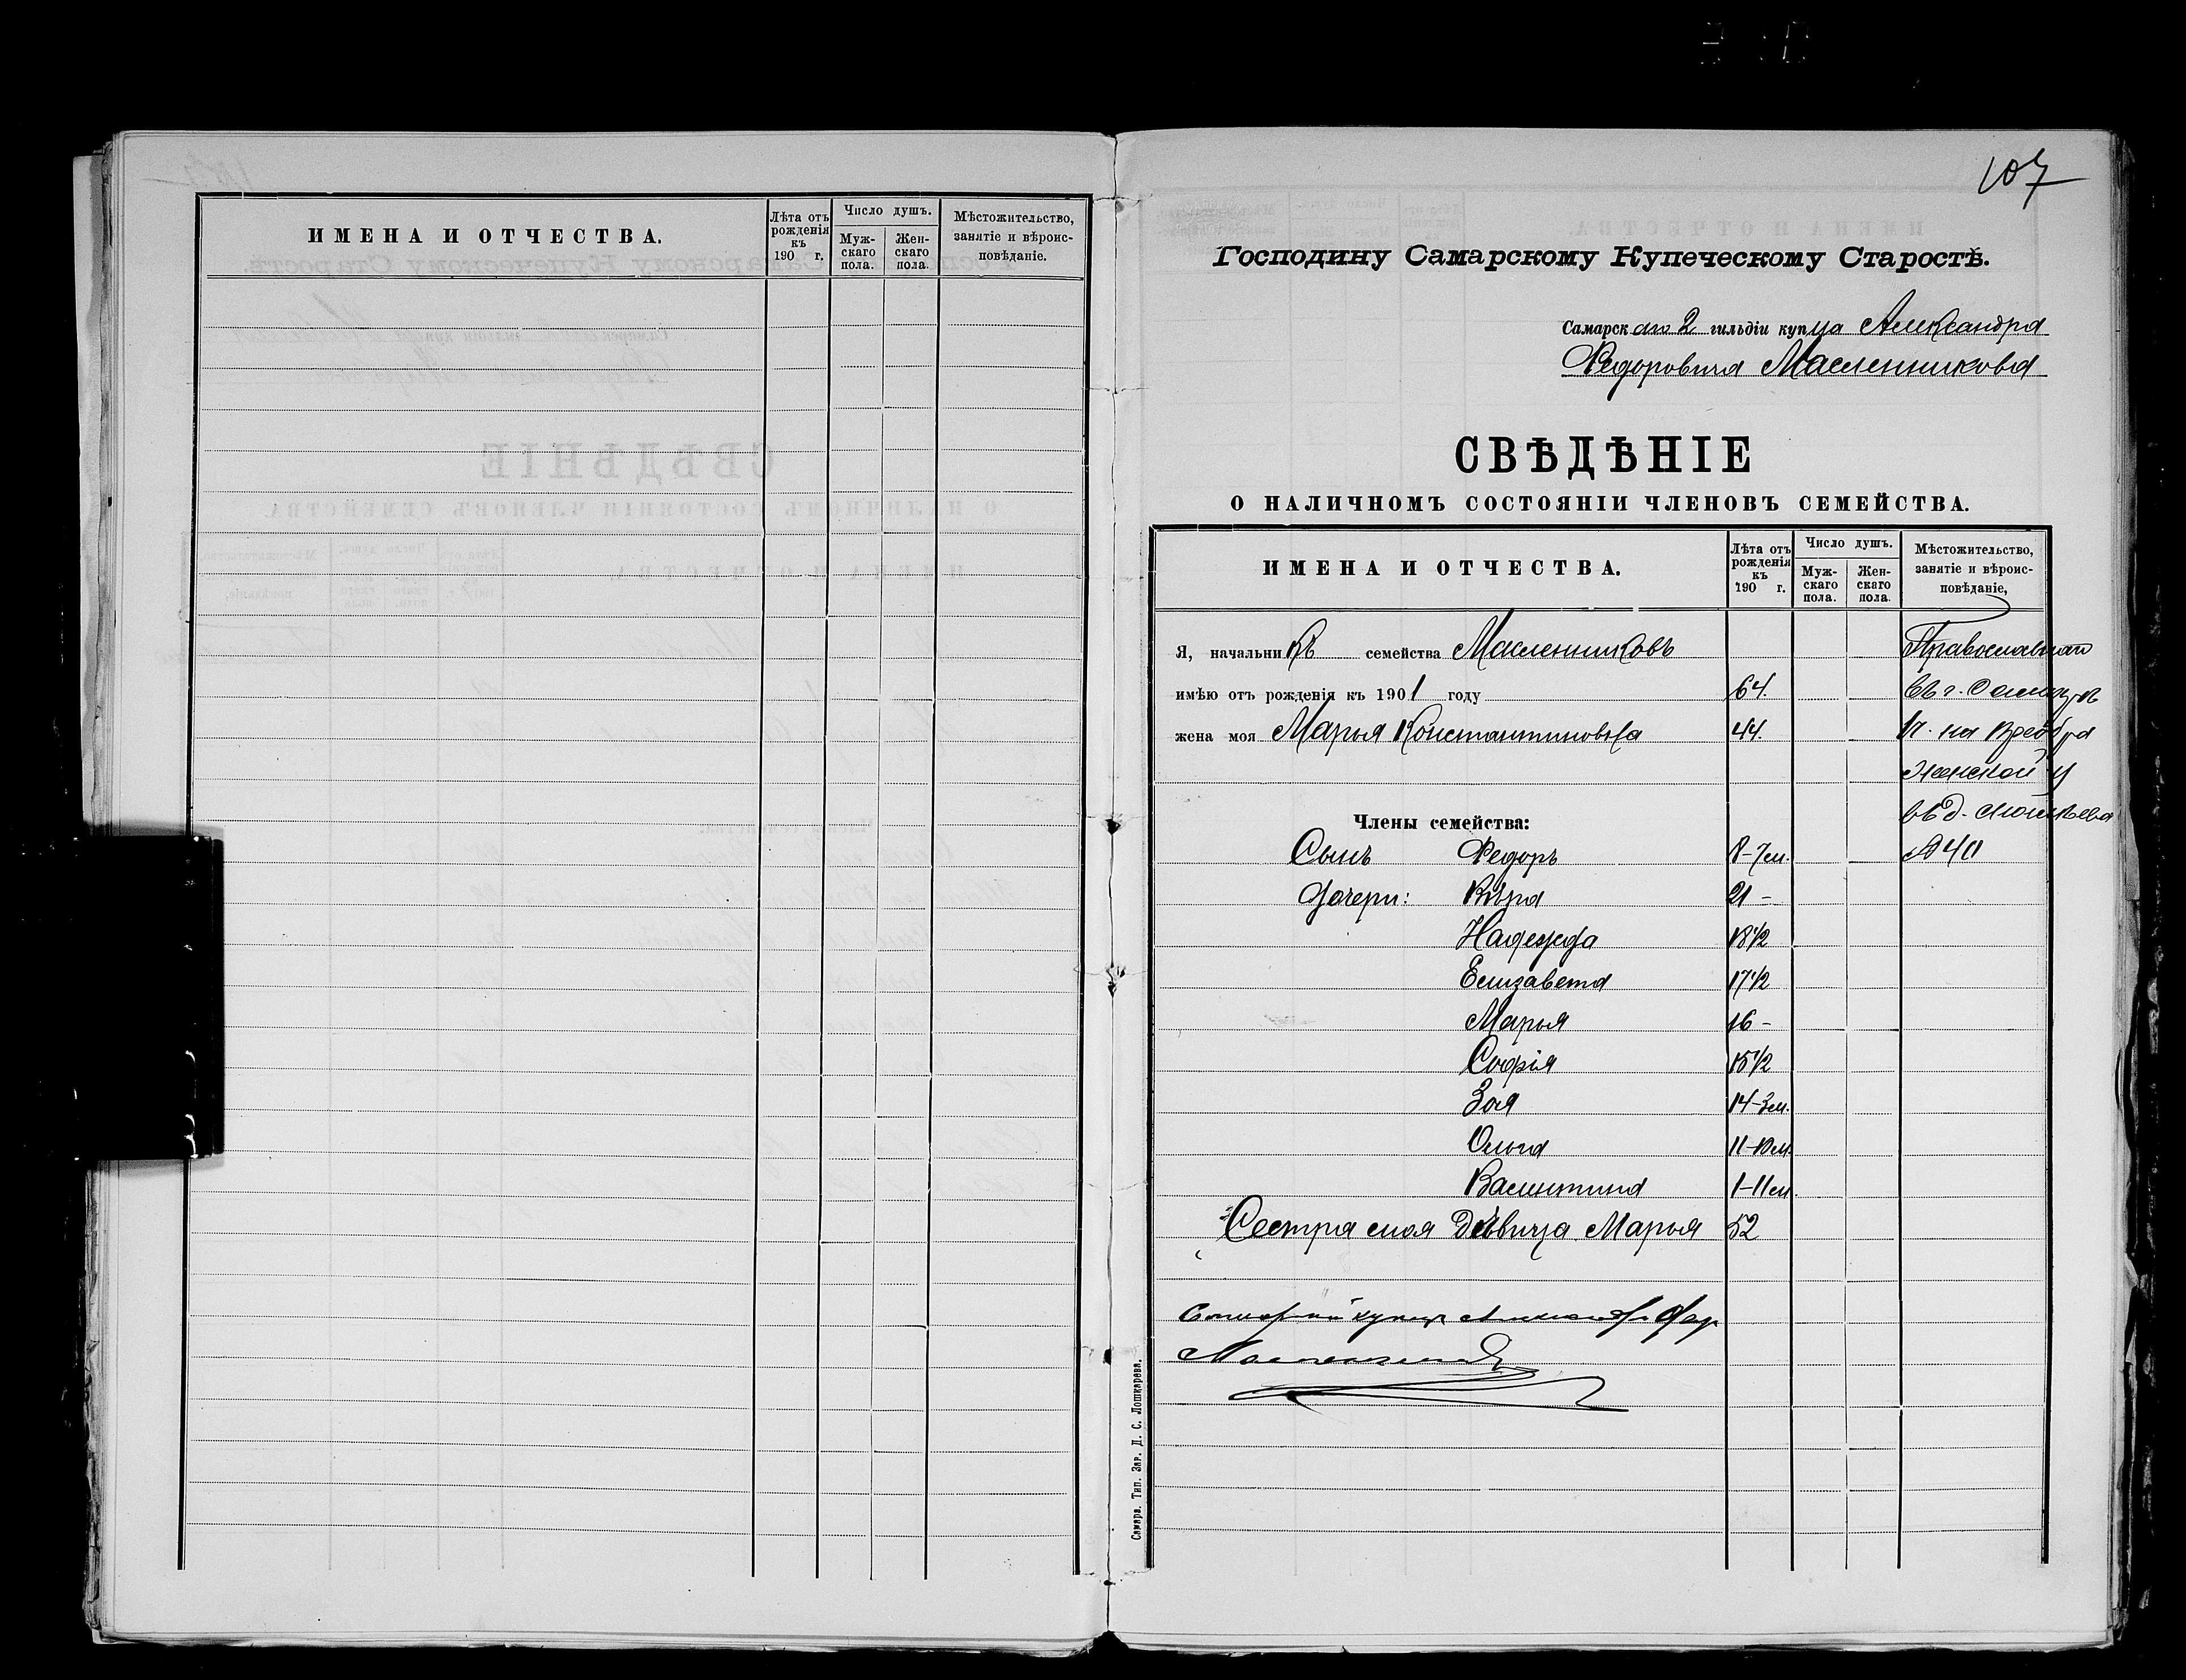 ИМЕНА И ОТЧЕСТВА.
Лѣта отъ рожденія къ 190 г.
Число душъ.
Мужскаго пола.
Женскаго пола.
Мѣстожительство, занятіе и вѣроисповѣданіе.
107
Господину Самарскому Купеческому Старостѣ.
Самарскаго 2 гильдіи купца Александра
Федоровича Масленникова
СВѢДѢНІЕ
О НАЛИЧНОМЪ СОСТОЯНІИ ЧЛЕНОВЪ СЕМЕЙСТВА.
ИМЕНА И ОТЧЕСТВА.
Лѣта отъ рожденія къ 190 г.
Число душъ.
Мужскаго пола.
Женскаго пола.
Мѣстожительство, занятіе и вѣроисповѣданіе,
Я, начальникъ семейства Масленниковъ
имѣю отъ рожденія къ 1901 году 64. въ г. Самарѣ
жена моя Марья Константиновна 44. на
въ д.
Члены семейства:
Сынъ Федоръ 8-7м.
Дочери: Вѣра 21 -
Надежда 18 1/2
Елизавета 17 1/2
Марья 16 -
Софія 15 1/2
Зоя 14-3м.
Ольга 11-10м.
Валентина 1-11м.
Сестра моя Дѣвица Марья 52
купецъ
Самара. Тип. Зяр. Д. С. Лошкарева.